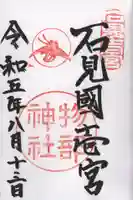 石見國壱宮
物部神社
令和五年八月十三日